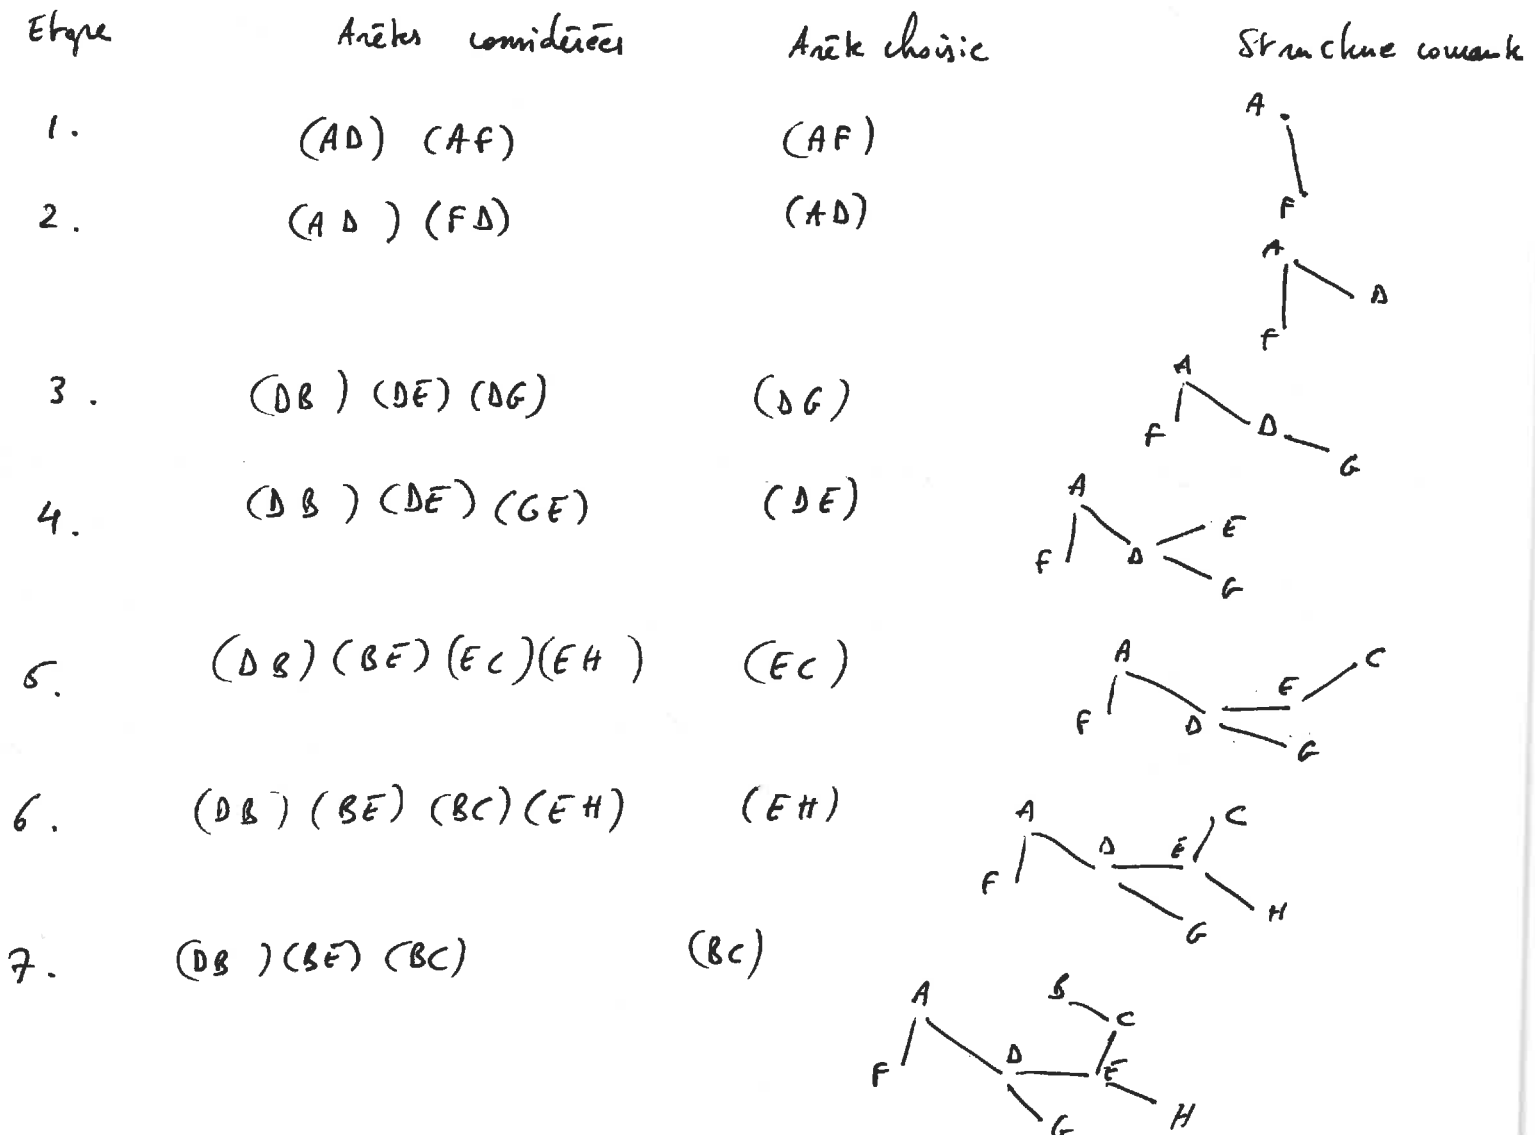 Etape Arêtes considérées Arête choisie Structure courante
1. (AD) (AF) (AF)
A
F
2. (AD) (FD) (AD)
A
D
F
3. (DB) (DE) (DG) (DG)
A
F D
G
4. (DB) (DE) (GE) (DE)
A
E
F D
G
5. (DB) (BE) (EC) (EH) (EC)
A C
E
F D
G
6. (DB) (BE) (BC) (EH) (EH)
A C
D E
F
H
G
7. (DB) (BE) (BC) (BC)
A B
C
D
F E
H
G